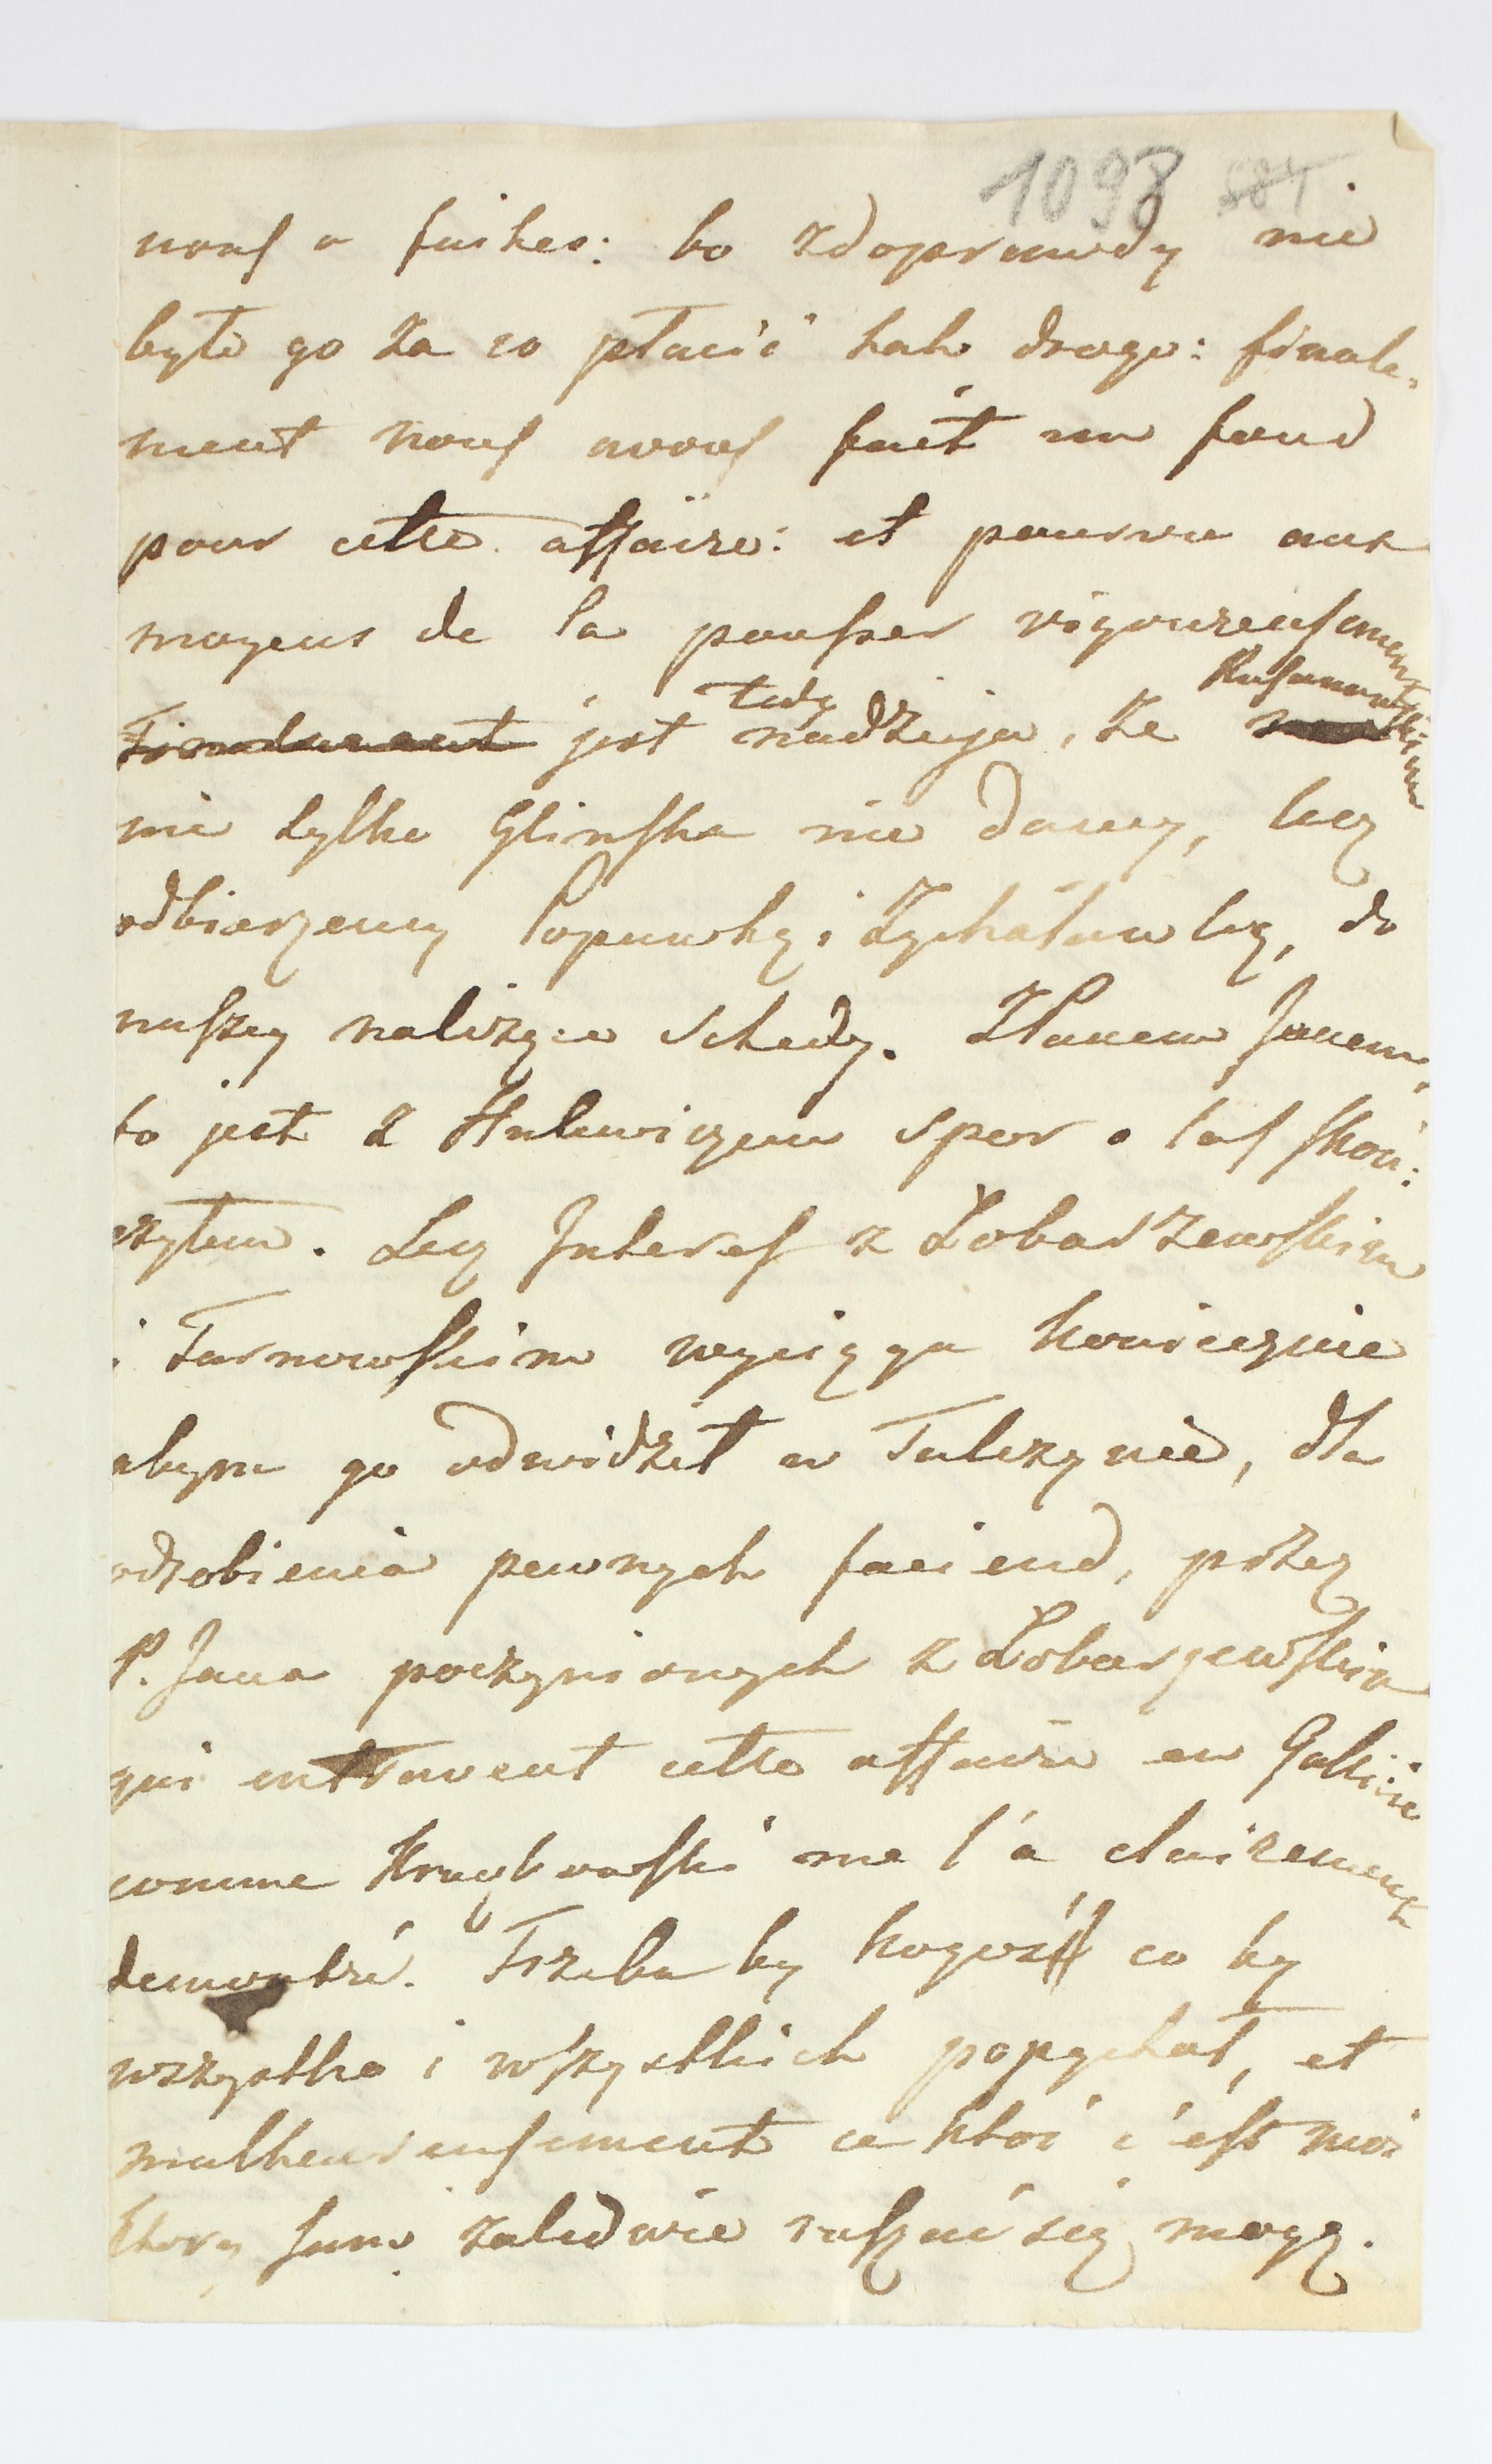 1098 584
nous a faites: bo zdoprawdy nie
było go za co płacić tak drogo: finale-
ment nous avons fait un fond
pour cette affaire: et pourvu aux
moyens de la pousser vigoureusement
Finalement jest tedy nadzieja, że Rusanowskim
nie tylko Glinska nie damy, lecz
odbierzemy Popowkę i Zychałówkę, do
naszey należące Schedy. Z Panem Janem,
to jest z Hulewiczem spor o las skoń:
czyłem. Lecz Interes z Łobarzewskim
i Tarnowskim wyciąga koniecznie
abym go odwidził w Tulczynie, dla
odrobienia pewnych faciend, przez
P. Jana poczynionych z Łobarzewskim
qui entravent cette affaire en Galicie
comme me l'a clairement
demontré. Trzeba by kogoś co by
wszystko i wszystkich popychał, et
malheureusement ce ktoś c'est moi
ktory sam zaledwie ruszać się mogę.